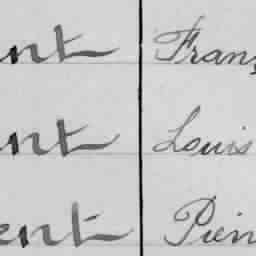 ent Franç
ent Louis
ent Pierr